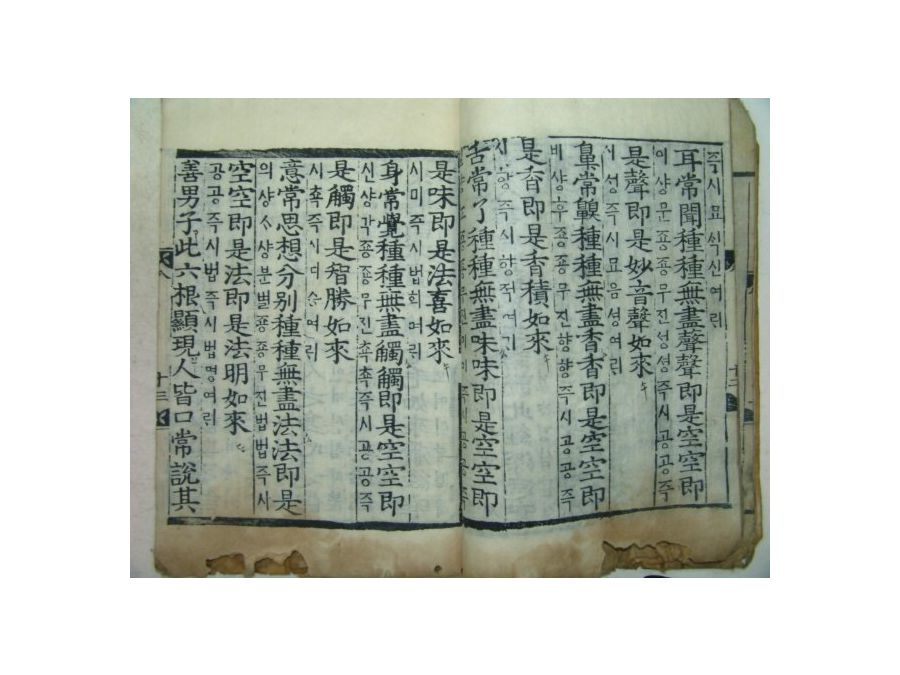 즉시묘식신여ᄅᆡ
耳常聞種種無盡聲聲即是空空即
이샹문죵죵무진셩셩즉시공공즉
是聲即是妙音聲如來
시셩즉시묘음셩여ᄅᆡ
鼻常齅種種無盡香香即是空空即
비샹후죵죵무진향향즉시공공즉
是香即是香積如來
시향즉시향젹여ᄅᆡ
舌常了種種無盡味味即是空空即
是味即是法喜如來
시미즉시법희여ᄅᆡ
身常覺種種無盡觸觸即是空空即
신샹각죵죵무진쵹쵹즉시공공즉
是觸即是智勝如來
시쵹즉시디승여ᄅᆡ
意常思想分别種種無盡法法即是
의샹ᄉᆞ샹분별죵죵무진법법즉시
空空即是法即是法明如來
공공즉시법즉시법명여ᄅᆡ
善男子此六根顯現人皆口常說其
十三